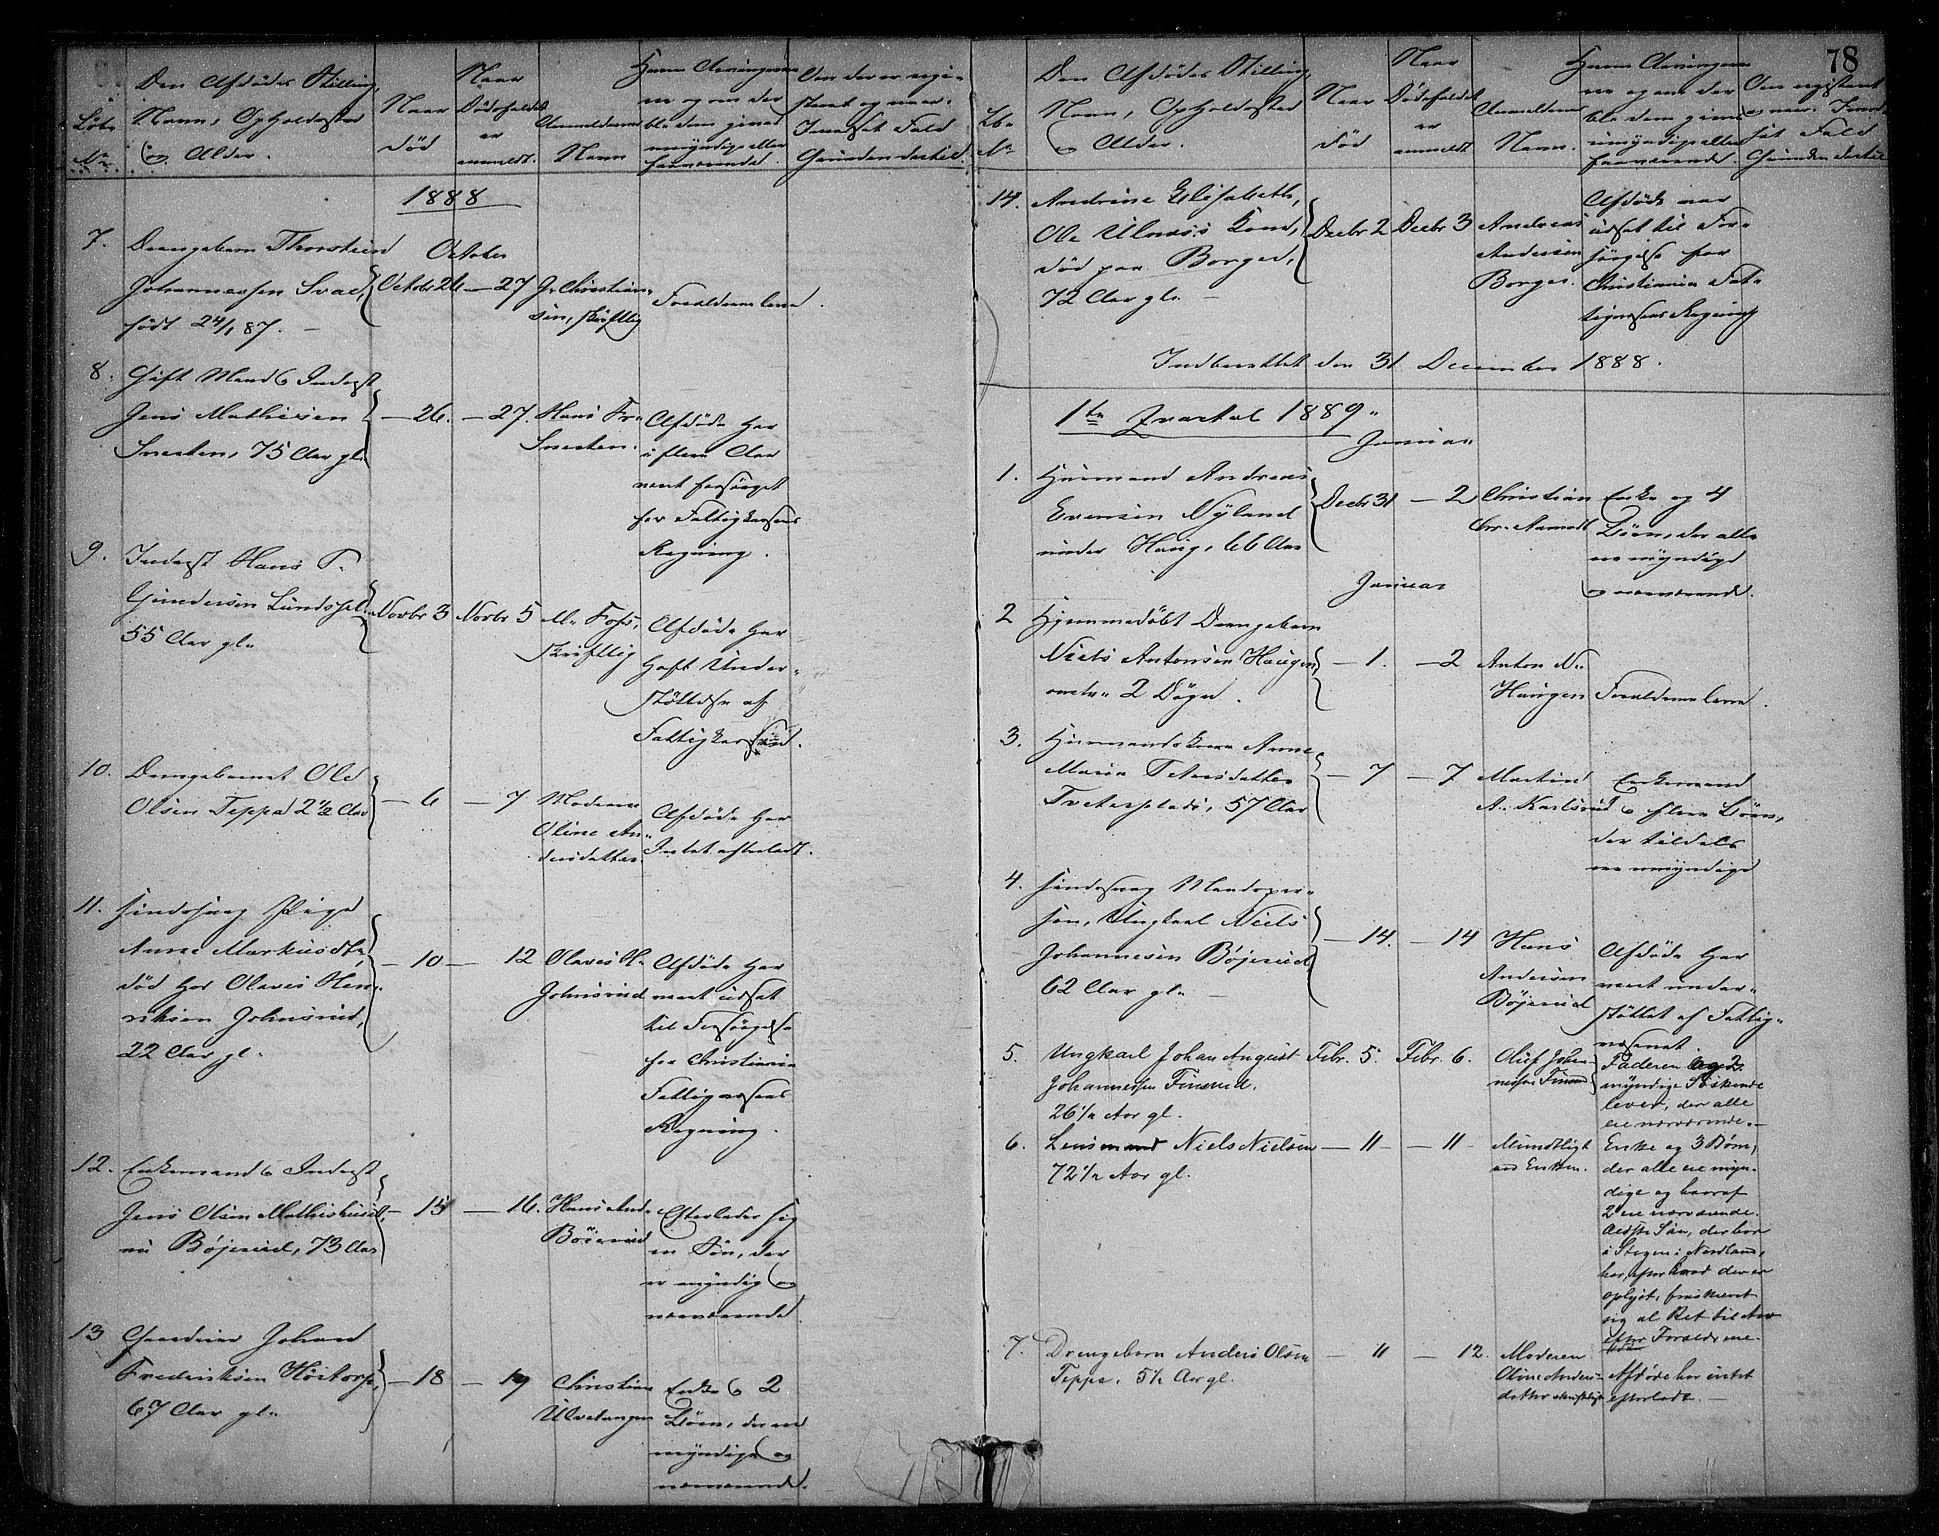 78
Løbe
No
Den Afdødes Stilling,
Navn, Opholdssted
og Alder.
Naar
død
Naar
Dødsfaldet
er
anmeldt.
Anmelderens
Navn
Hvem Arvingerne
ere og om der
blandt dem gives
umyndige eller
fraværende.
Om der er regi-
streret og naar.
I modsat Fald
Grunden dertil.
1888
7. Drengebarn Thorstein
Johannessen Svae,
født 24/1 87. —
October
Octbr 26 — 27
J. Christian-
sen, skriftlig
Forældrene leve.
8. Gift Mand & Inderst
Jens Mathisen
Snesten, 75 Aar gl.
— 26. — 27.
Hans Fr.
Snesten.
Afdøde har
i flere Aar
været forsørget
for Fattigkassens
Regning.
9. Inderst Hans P.
Gundersen
55 Aar gl.
Novbr 3 Novbr 5
M. Foss,
skriftlig
Afdøde har
havt Under-
støttelse af
Fattigkassen.
10. Drengebarnet Ole
Olsen Teppa 2 1/2 Aar
— 6 — 7
Moderen
Oline An-
dersdatter
Afdøde har
Intet efterladt.
11. Sindssvag Pige
Anne Markusdtr,
død hos Olaves Hen-
riksen Johnsrud,
22 Aar gl.
— 10 — 12
Olaves H.
Johnsrud
Afdøde har
været udsat
til Forsørgelse
for Christiania
Fattigvæsens
Regning.
12. Enkemand & Inderst
Jens Olsen
nu Bøjerud, 73 Aar
— 15 — 16.
Hans And.
Bøierud
Efterlader sig
en Søn, der
er myndig og
nærværende.
13 Gaardeier Johan
Frederiksen Høitorp,
67 Aar gl.
— 18 — 19
Christian
Ulvetangen
Enke & 2
Børn, der ere
myndige og
nærværende.
Lb.
No
Den Afdødes Stilling,
Navn, Opholdssted
og Alder.
Naar
død
Naar
Dødsfaldet
er
anmeldt
Anmelderens
Navn.
Hvem Arvingerne
ere og om der
blandt dem gives
umyndige eller
fraværende.
Om registreret
og naar. I mod-
sat Fald
Grunden dertil
14. Andrine Elisabeth,
Ole Ulnæss Kone,
død paa Borger,
72 Aar gl. —
Decbr 2 Decbr 3
Andreas
Andersen
Borger.
Afdøde var
udsat til For-
sørgelse for
Christiania Fat-
tigvæsens Regning
Indberettet den 31 December 1888.
1ste Qvartal 1889.
Januar
1. Husmand Andreas
Evensen Nyland
under Haug, 66 Aar
Decbr 31 — 2
Christian
Chr. Aamodt
Enke og 4
Børn, der alle
ere myndige
og nærværende.
Januar
2 Hjemmedøbt Drengebarn
Niels Antonsen Haugen,
2 Døgn.
— 1. — 2
Anton N.
Haugen
Forældrene leve.
3. Husmandskone Anne
Maria Petersdatter
57 Aar
— 7 — 7
Martin
A. Karlsrud
Enkemand
& flere Børn,
der tildels
ere umyndige
4. Sindssvag Mandsper-
son, Ungkarl Niels
Johannesen Bøjerud
62 Aar gl. —
— 14. — 14
Hans
Andersen
Bøjerud
Afdøde har
været under-
støttet af Fattig-
væsenet.
5. Ungkarl Johan August
Johannessen Finsrud.
26 1/2 Aar gl.
Febr. 5. Febr. 6.
Oluf Johan-
nesen Finsrud
Faderen og 2
myndige Søskende
lever, der alle
ere nærværende. —
6. Lensmand Niels Nielsen
72 1/2 Aar gl.
— 11 — 11
Mundtligt
ved Enken.
Enke og 3 Børn,
der alle ere myn-
dige og hvoraf
2 ere nærværende.
Ældste Søn, der bor
i Stegen i Nordland,
har, efter hvad der er
oplyst, fraskrevet
sig al Ret til Arv
efter Forældrene.
7. Drengebarn Anders Olsen
Teppa, 5 1/2 Aar gl.
— 11 — 12.
Moderen
Oline Anders-
datter skriftligt
Afdøde har intet
efterladt. —